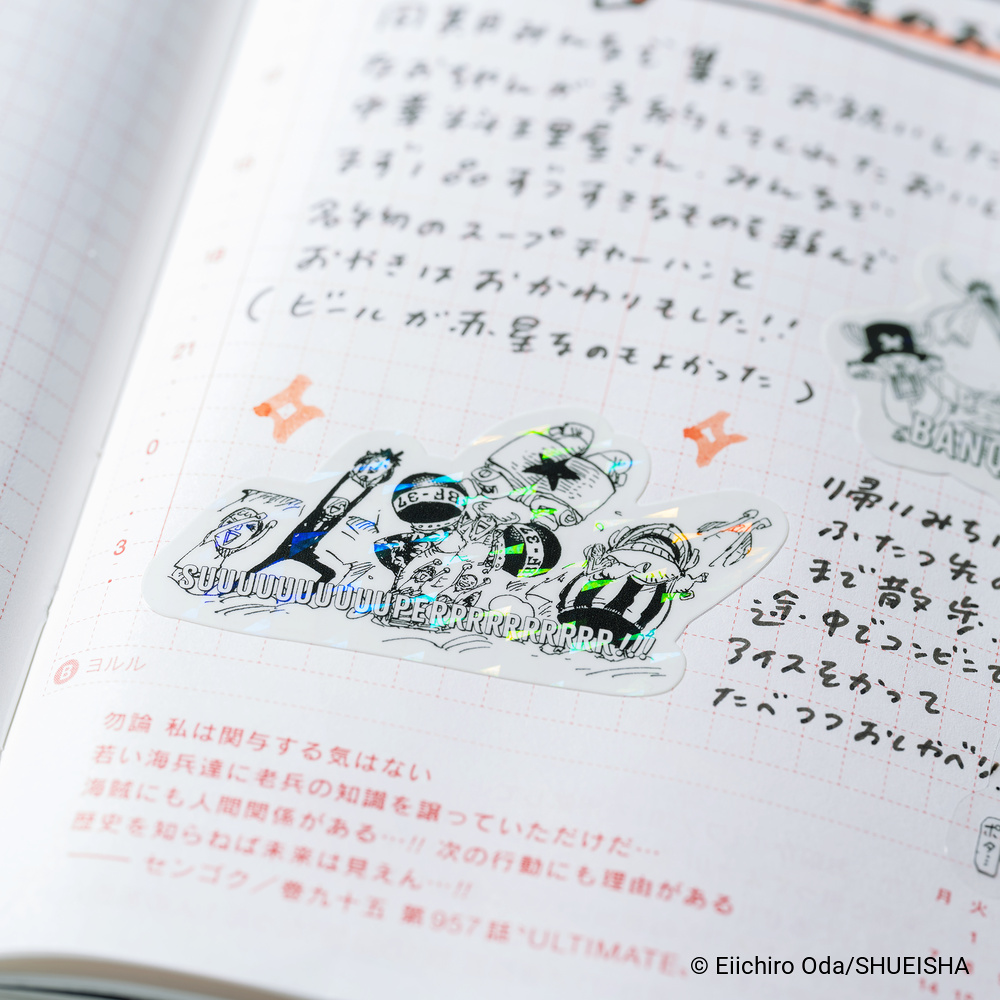 みんなで集って お祝いした
なおちゃんが予約してくれた おいし
中華料理 さん、みんなで
まず1品ずつすきなものを頼んで
名物のスープチャーハンと
おやきは おかわりもした!!
(ビールが赤星なのもよかった)
BF-37
BANQ
SUUUUUUUUUUPERRRRRRRRRR!!!
帰りみち
ふたつ先の
まで散歩
途中でコンビニで
アイスをかって
たべつつおしゃべり
18
21
0
3
B ヨルル
勿論 私は関与する気はない
若い海兵達に老兵の知識を譲っていただけだ…
海賊にも人間関係がある…!! 次の行動にも理由がある
歴史を知らねば未来は見えん…!!
—— センゴク/巻九十五 第957話“ULTIMATE”
ポタミ
月 火
1
7 8
14
© Eiichiro Oda/SHUEISHA